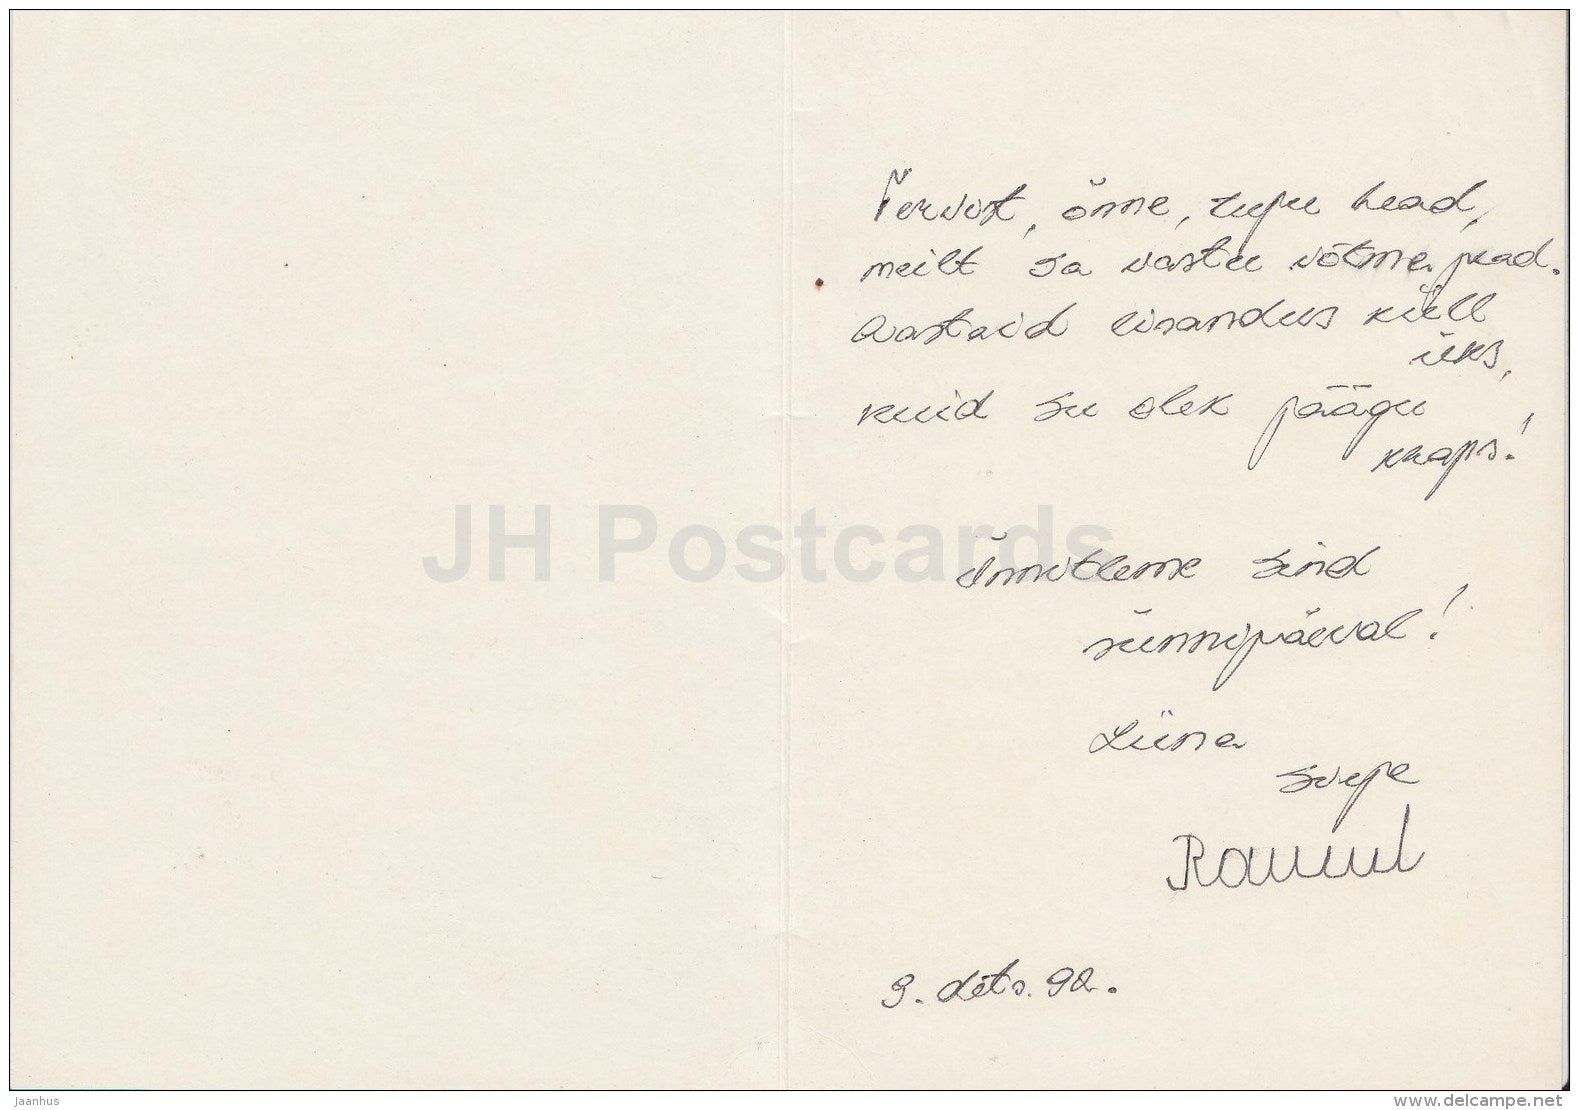 Tervist, õnne, tuju head,
meilt sa vastu võtma pead.
Aastaid lisandus küll
üks,
kuid su olek jäägu
krapsˊ!
Õnnitleme Sind
sünnipäeval!
Liina
Sirje
Raivul
9. dets. 92.
JH Postcards
Jaanhus
www.delcampe.net